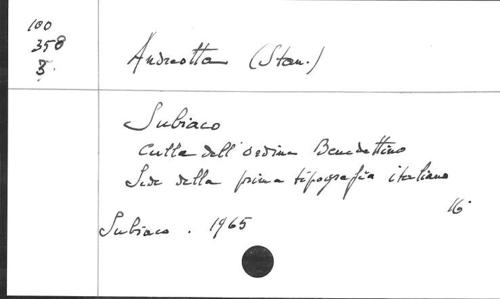 100
358
3.
Andreotta (Stan.)
Subiaco
culla dell'ordine Benedettino
Sede della prima tipografia italiana
16°
Subiaco. 1965